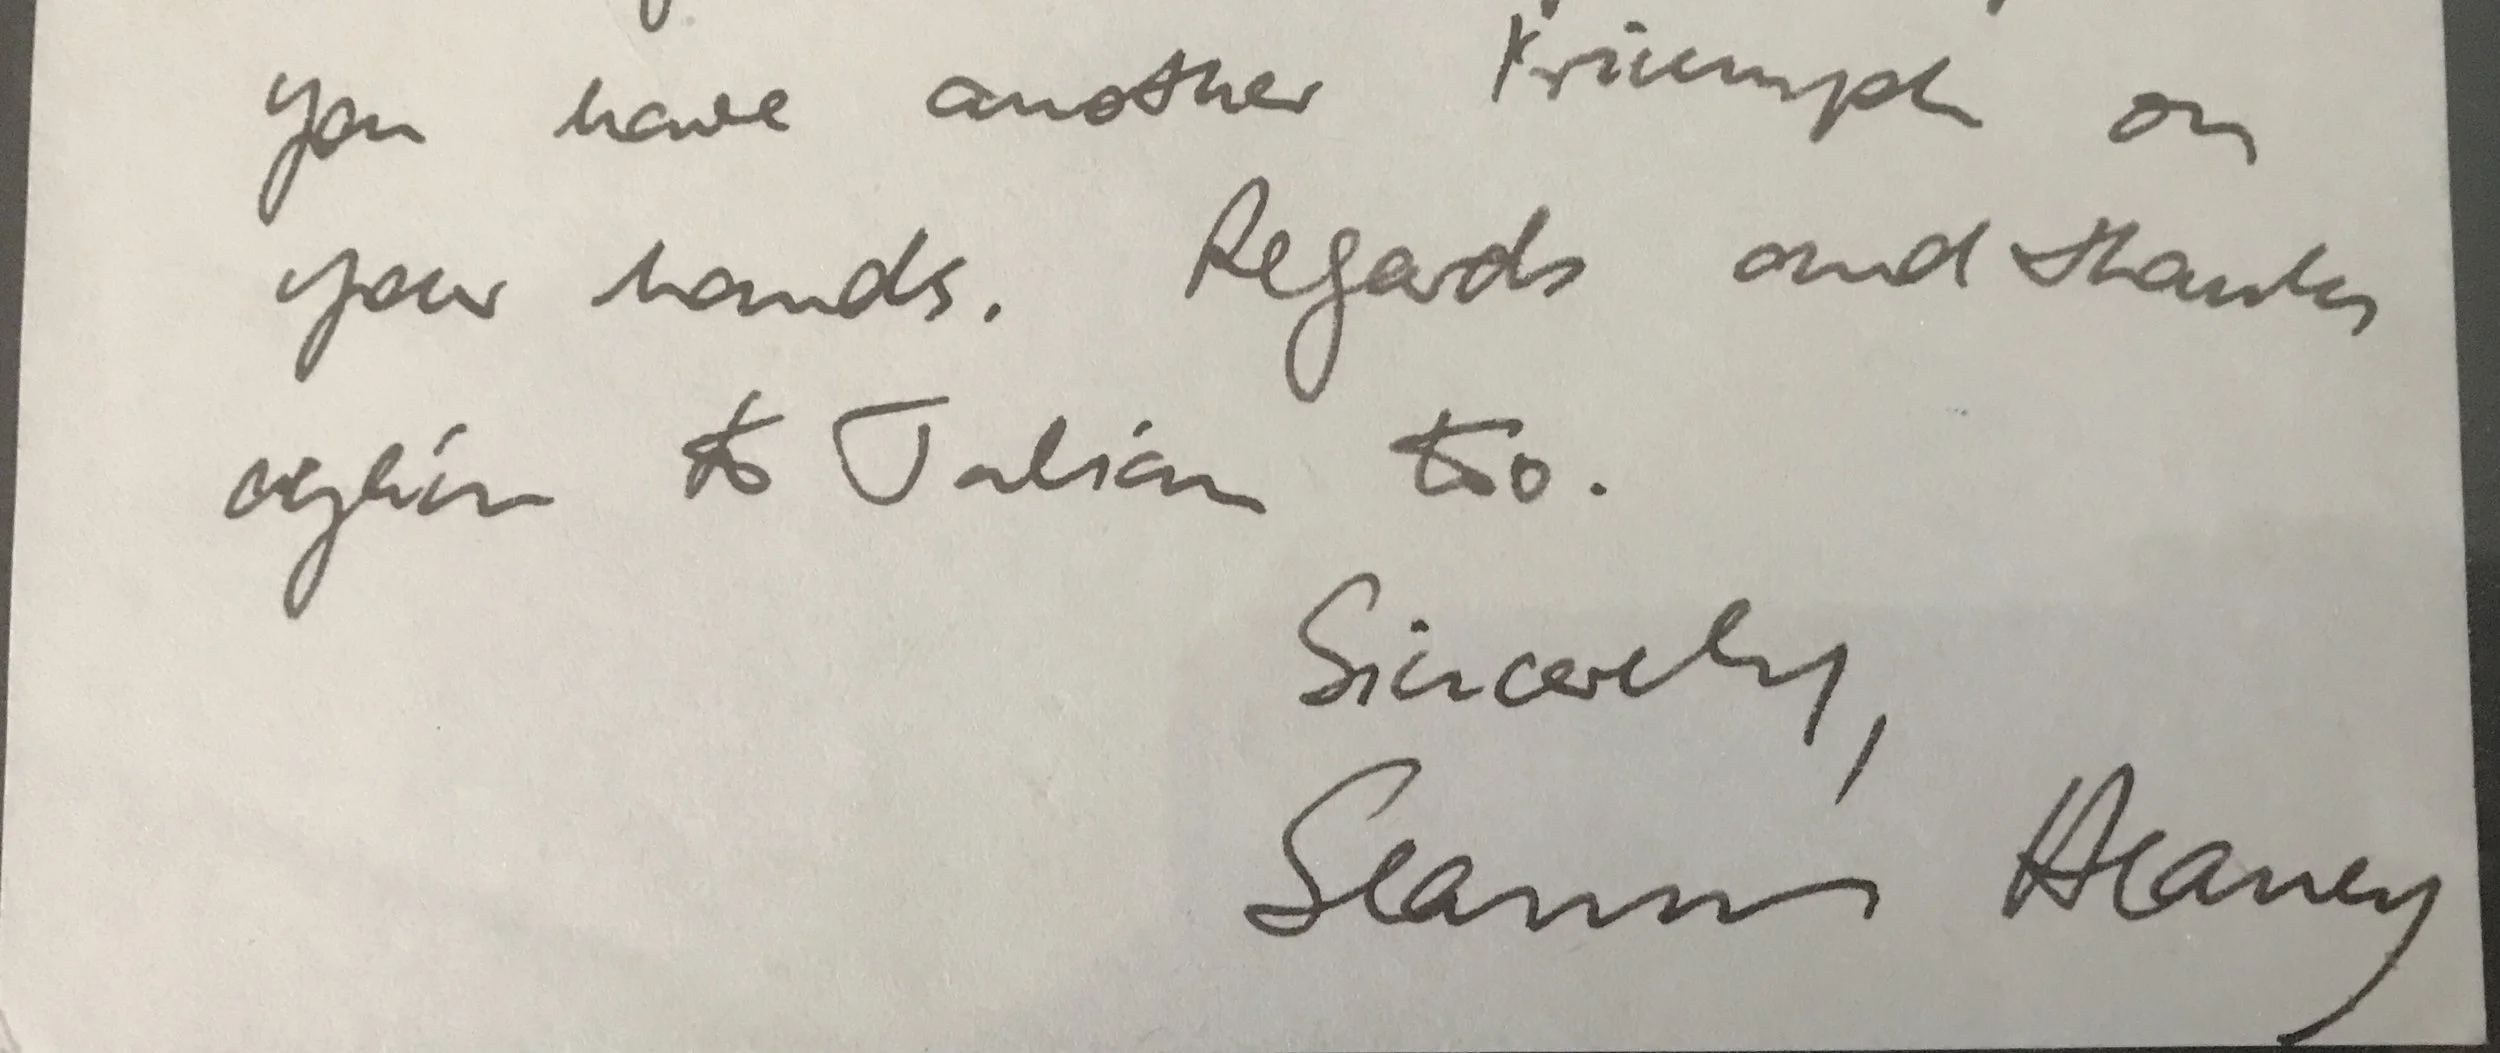 you have another triumph on
your hands. Regards and thanks
again to Julian too.
Sincerely,
Seamus Heaney